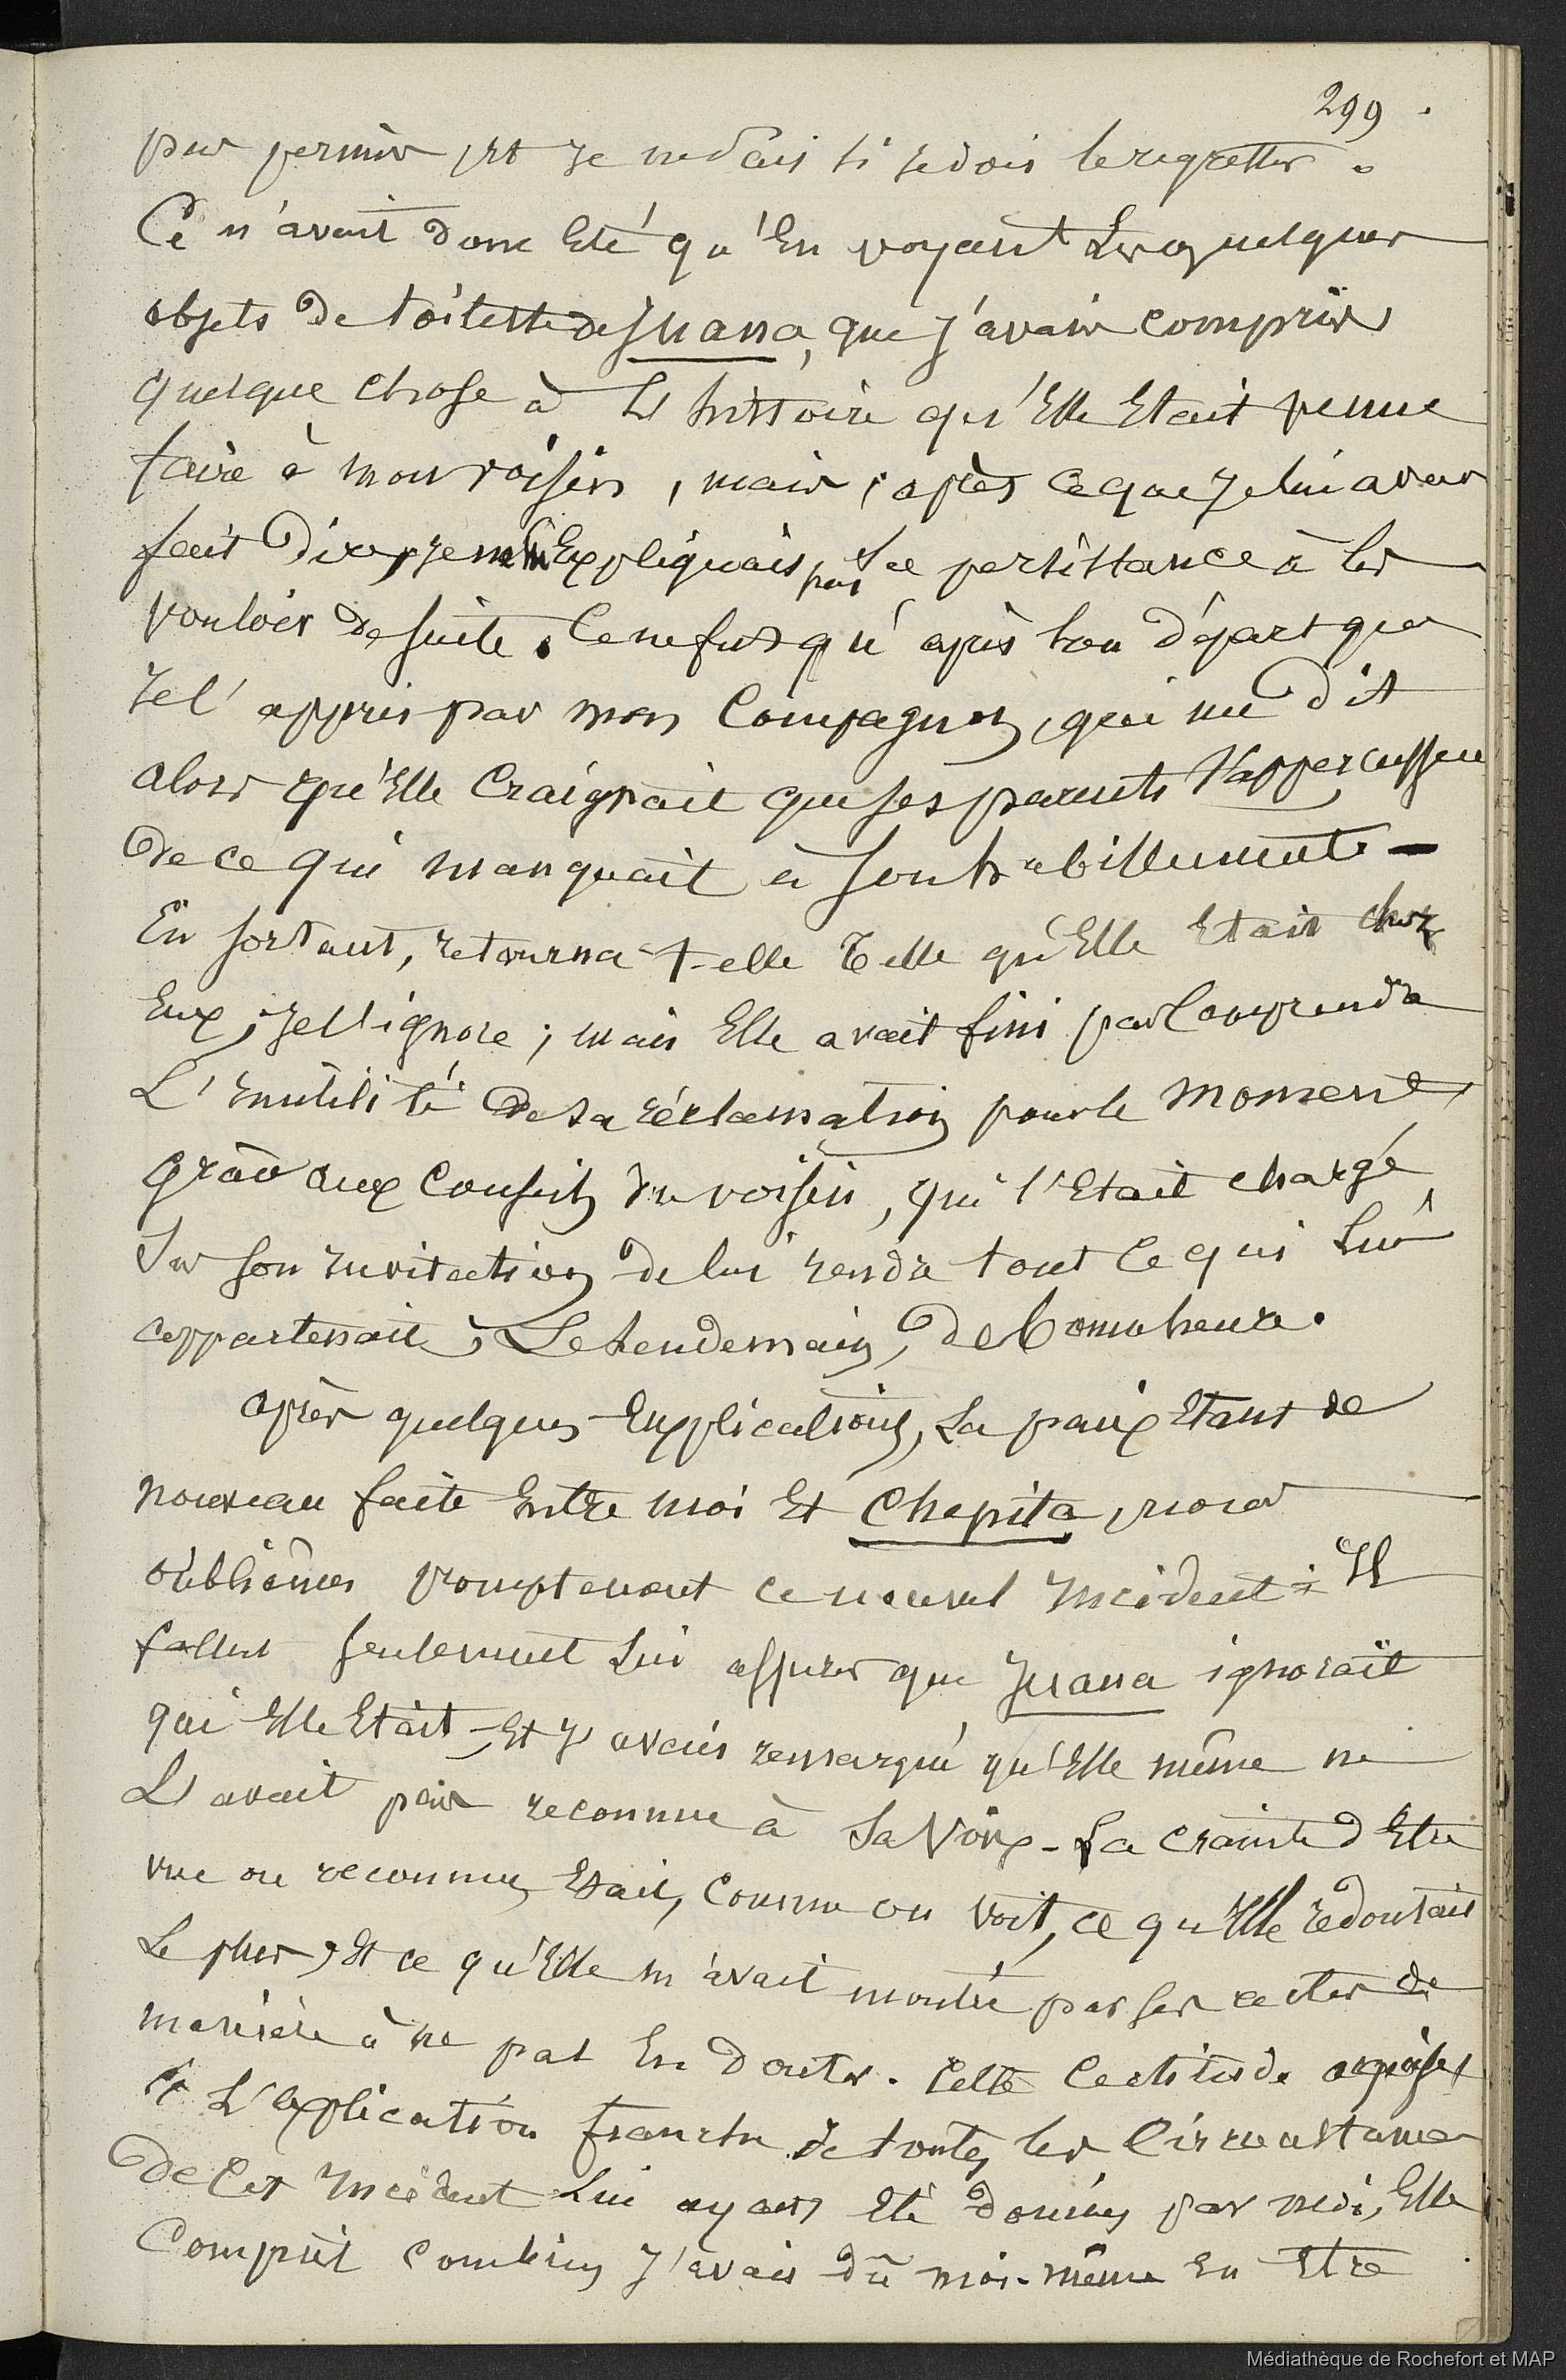 299.
pas permis, et je ne sais si je dois le regretter.
Ce n'avait donc été qu'en voyant les quelques
objets de toilette de Juana, que j'avais compris
quelque chose à l'histoire qu'Elle Etait venue
faire à mon voisin, mais, après ce que je lui avais
fait dire, je m'Expliquais pas sa persistance à les
vouloir de suite. Ce ne fut qu'après son départ que
je l'appris par mon Compagnon, qui me dit
alors qu'Elle Craignait que ses parents s'apperçussent
de ce qui manquait à son habillement -
En sortant, retourna-t-elle Telle qu'Elle Etait chez
Eux, je l'ignore; mais Elle avait fini par Comprendre
L'inutilité de sa réclamation pour le moment,
grâce aux Conseils du voisin, qui s'Etait chargé,
sur son invitation, de lui rendre tout ce qui lui
appartenait, Le Lendemain, de bonne heure.
après quelques Explications, La paix Etant de
nouveau faite Entre moi Et Chepita, nous
oubliâmes promptement ce nouvel incident: Il
fallut seulement lui assurer que Juana ignorait
qui Elle Etait, Et j'avais remarqué qu'Elle même ne
L'avait pas reconnue à sa Voix - La crainte d'Etre
vue ou reconnue, Etait, Comme on voit, ce qu'Elle redoutait
Le plus, Et ce qu'Elle m'avait montré par ses actes de
manière à ne pas En douter. Cette Certitude acquise,
Et L'explication franche de toutes les Circonstances
de Cet incident Lui ayant Eté données par moi, Elle
Comprit Combien j'avais dû moi-même En Etre
Médiathèque de Rochefort et MAP